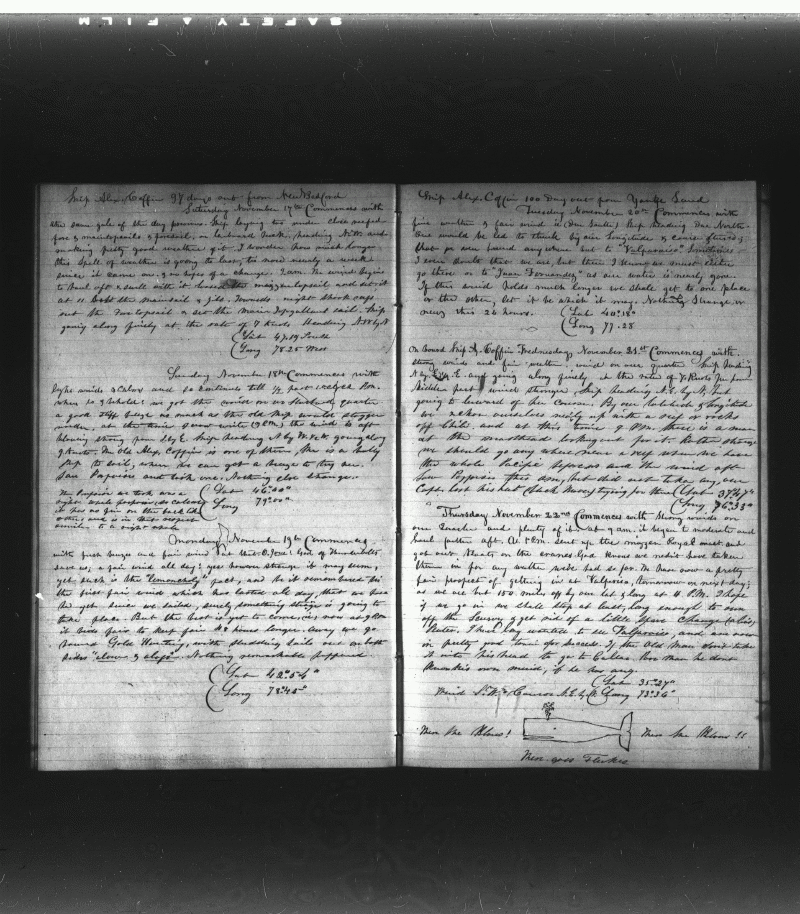 SAFETY FILM
Ship Alex. Coffin 97 days out from New Bedford
Saturday November 17th Commences with
the same gale of the day previous. Ship laying too under close reefed
fore & maintopsails & foresail, on larboard tack, heading
making pretty good weather of it. I wonder how much longer
this spell of weather is going to last, tis now nearly a week
since it came on, & no hopes of a change. 2 a.m. The wind begins
to haul aft & with it the mizzentopsail and set it
at 11 the mainsail & jib. Towards night shook reefs
out the & set the Main Topgallant sail. Ship
going along finely at the rate of 7 Knots Heading N by W
Lat 47.19 South
Long 78.25 West
Sunday November 18th Commences with
light winds & calms and so continues till ½ past
when lo & behold! we got the wind on our Starboard quarter
a good stiff breeze as much as the old ship would stagger
under, at this time 9 P.M. the wind is aft
blowing strong from S by E. Ship heading N by W & going along
9 Knots. The Old Alex. Coffin is one of them, She is a bully
Ship to sail, when we can get a breeze to
Saw Porpoises and took one. Nothing else strange.
The Porpoise we took was a
right whale porpoise, so called
it has no fin on the back like
others, and is in that respect
similar to a right whale
Lat 46°00"
Long 79°00"
Monday November 19th Commences
with fresh breeze and fair wind
save us; a fair wind all day! yes however strange it may seem,
yet such is the "lemoncholy" fact, and be it remembered tis
the first fair wind which has lasted all day, that we have
had yet since we sailed, surely something strange is going to
take place. But the best is yet to come,
it bids fair to keep fair 48 hours longer. Away we go
bound Gold Hunting, with studding sails out on both
sides "alow & aloft". Nothing remarkable happened
Lat 42°54"
Long 78°45"
Ship Alex. Coffin 100 Days out from Yankee Land
Tuesday November 20th Commences with
fine weather & fair wind Ship heading Due North.
One would be led to think by our Longitude & course steered,
that we were bound anywhere but to "Valparaiso". Sometimes
I even doubt that we are, but then I think we must either
go there or to "Juan Fernandez" as our water is nearly gone.
If this wind holds much longer we shall get to one place
or the other, let it be which it may. Nothing Strange or
new this 24 hours.
Lat 40°18"
Long 77.28
On Board Ship A. Coffin Wednesday November 21st Commences with
strong wind and fine weather wind on our quarter Ship heading
N by E and going along finely at the rate of 7 Knots
Middle part wind stronger, Ship heading N.E. by N, but
going to leeward of her course. By our Latitude & Longitude
we reckon ourselves nigh up with a reef or rocks
off Chili and at this time 9 P.M. there is a man
at the masthead looking out for it. Rather strange
we should go any where near a reef when we have
the whole Pacific before us and the wind aft
Saw Porpoises this day, but did not take any, our
Capt. lost his hat trying for them
Lat 37°47"
Long 76°33"
Thursday November 22nd Commences with strong winds on
our quarter and plenty of it. at 9 a.m. it began to moderate and
haul further aft. At 1 P.M. sent up the mizzen Royal mast and
got our Boats on the cranes God knows we needn't have taken
them in for any weather we've had so far. We have now a pretty
fair prospect of getting in at Valparaiso, tomorrow or next day;
as we are but 150 miles off by our lat & long at 4 P.M. I hope
if we go in we shall stop at least, long enough to
off the Scurvy & get rid of a little Spare Change (alias)
Water. I have long wanted to see Valparaiso, and am now
in pretty good time for success. If the Old Man don't take
it into his head to go to Callao. Poor man he don't
know his own mind, if he has any.
Lat 35°27"
Wind Course N.E. by N Long 73°36"
There She Blows!
There She Blows!!
There goes Flukes